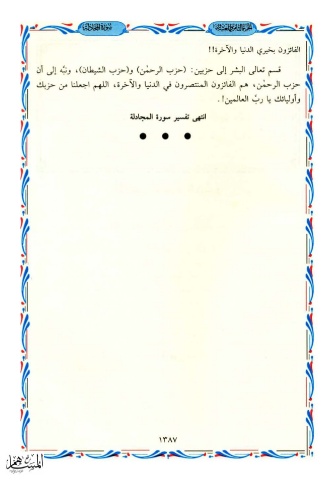 سورة المجادلة
الفائزون بخيري الدنيا والآخرة!!
قسم تعالى البشر إلى حزبين: (حزب الرحمٰن) و(حزب الشيطان)، ونبَّه إلى أن
حزب الرحمٰن، هم الفائزون المنتصرون في الدنيا والآخرة، اللهم اجعلنا من حزبك
وأوليائك يا ربّ العالمين!.
انتهى تفسير سورة المجادلة
١٣٨٧